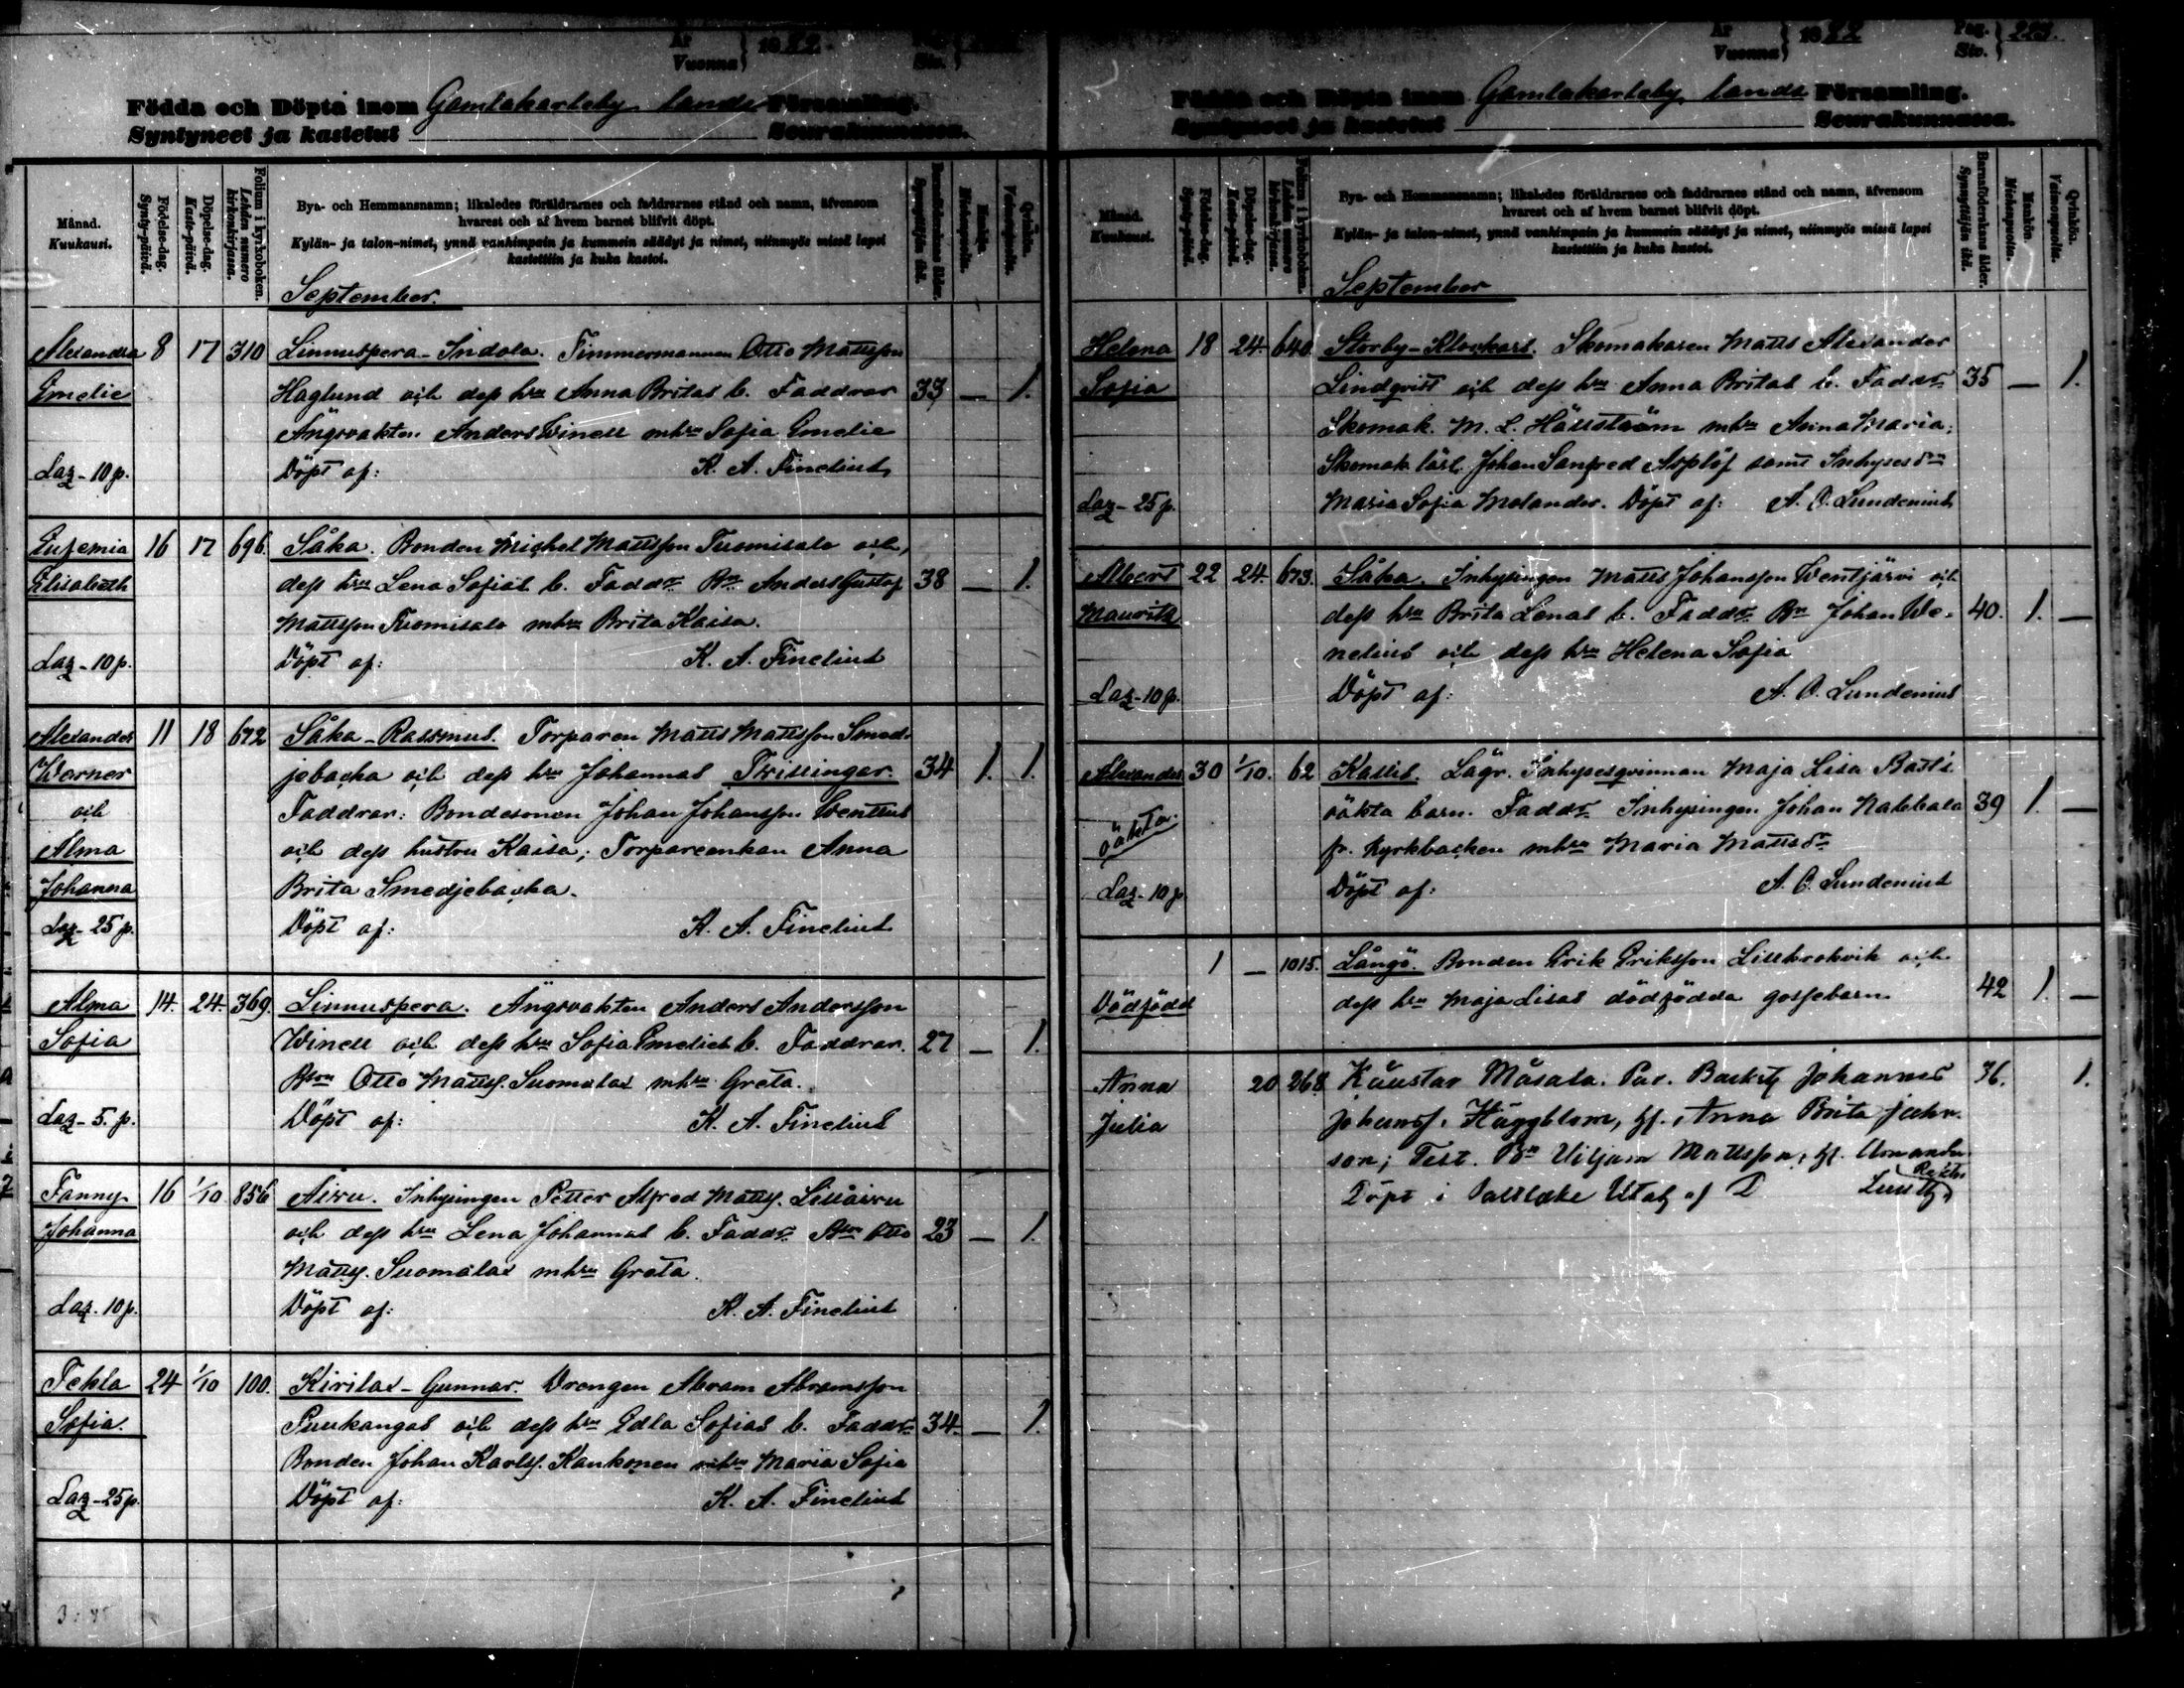 År 1882.
Vuonna
Siv.
Födda och Döpta inom Gamlakarleby lands Församling.
Syntyneet ja kastetut Seurakunnassa.
Månad.
Kuukausi.
Födelse-dag.
Synty-päivä.
Döpelse-dag.
Kaste-päivä.
Folium i kyrkoboken.
Lehden numero kirkonkirjassa.
Bya- och Hemmansnamn; likaledes föräldrarnes och faddrarnes stånd och namn, äfvensom
hvarest och af hvem barnet blifvit döpt.
Kylän- ja talon-nimet, ynnä vanhimpain ja kummein säädyt ja nimet, niinmyös missä lapsi
kastettiin ja kuka kastoi.
Barnföderskans ålder.
Synnyttäjän ikä.
Mankön.
Miehenpuolia.
Qvinkön.
Vaimonpuolia.
September.
Alexandra 8 17 310 Linnuspera-Indola. Timmermannen Otto Mattsson
Emelie Haglund och dess hru Anna Britas b. Faddrar 33 — 1.
Ängsvakten Anders Winell mhru Sofia Emelie
Laz-10 p. Döpt af: K. A. Finelius
Eufemia 16 17 696. Såka. Bonden Michel Mattsson Tuomisalo och
Elisabeth dess hru Lena Sofias b. Faddr. Bn Anders Gustaf 38 — 1.
Mattsson Tuomisalo mhru Brita Kaisa.
Laz-10 p. Döpt af: K. A. Finelius
Alexander 11 18 672 Såka-Rassmus. Torparen Matts Mattsson Smed-
Werner jebacka och dess hru Johannas Twillingar. 34 1. 1.
och Faddrar: Bondesonen Johan Johansson Wentus
Alma och dess hustru Kaisa; Torpareenkan Anna
Johanna Brita Smedjebacka.
Laz-25 p. Döpt af: K. A. Finelius
Alma 14. 24. 369. Linnuspera. Ängsvakten Anders Andersson
Sofia Winell och dess hru Sofia Emelies b. Faddrar. 27 — 1.
Bson Otto Mattss. Suomalas mhru Greta.
Laz-5. p. Döpt af: K. A. Finelius
Fanny 16 1/10 856 Åivu. Inhysingen Petter Alfred Mattss. Lillåivu
Johanna och dess hru Lena Johannas b. Faddr. Bson Otto 23 — 1.
Mattss. Suomalas mhru Greta.
Laz-10 p. Döpt af: K. A. Finelius
Tekla 24 1/10 100. Kirilax-Gunnar. Drengen Abram Abramsson
Sofia. Puukangas och dess hru Edla Sofias b. Faddr. 34. — 1.
Bonden Johan Karlss. Kankonen mhru Maria Sofia
Laz-25 p. Döpt af: K. A. Finelius
År 1882 Pag. 223.
Vuonna Siv.
Födda och Döpta inom Gamlakarleby lands Församling.
Syntyneet ja kastetut Seurakunnassa.
Månad.
Kuukausi.
Födelse-dag.
Synty-päivä.
Döpelse-dag.
Kaste-päivä.
Folium i kyrkoboken.
Lehden numero kirkonkirjassa.
Bya- och Hemmansnamn; likaledes föräldrarnes och faddrarnes stånd och namn, äfvensom
hvarest och af hvem barnet blifvit döpt.
Kylän- ja talon-nimet, ynnä vanhimpain ja kummein säädyt ja nimet, niinmyös missä lapsi
kastettiin ja kuka kastoi.
Barnföderskans ålder.
Synnyttäjän ikä.
Mankön.
Miehenpuolia.
Qvinkön.
Vaimonpuolia.
September
Helena 18 24. 640 Storby-Klockars. Skomakaren Matts Alexander
Sofia Lindqvist och dess hru Anna Britas b. Faddr. 35 — 1.
Skomak. M. L. Hällström mhru Anna Maria;
Skomak. lärl. Johan Sanfred Asplöf samt Inhysesdn
Laz-25 p. Maria Sofia Molander. Döpt af: A. O. Sundenius
Albert 22 24. 673. Såka. Inhysingen Matts Johansson Wentjärvi och
Maurits dess hru Brita Lenas b. Faddr. Bn Johan We- 40. 1. —
nelius och dess hru Helena Sofia
Laz-10 p. Döpt af: A. O. Sundenius
Alexander 30 1/10. 62 Kallis. Lägr. Inhysesqvinnan Maja Lisa Basts
oäkta. oäkta barn. Faddr. Inhysingen Johan Nakkala 39 1. —
fr. Kyrkbacken mhru Maria Mattsdr
Laz-10 p Döpt af: A. O. Sundenius
1 — 1015. Långö. Bonden Erik Eriksson Lillkrokvik och
Dödfödd dess hru Maja Lisas dödfödda gossebarn. 42 1. —
Anna 20 268. Måsala. Johannes 36. 1.
Julia Häggblom, Anna Brita
son; Test. Bn Viljam Mattsson, Amanda
Döpt i Utah af